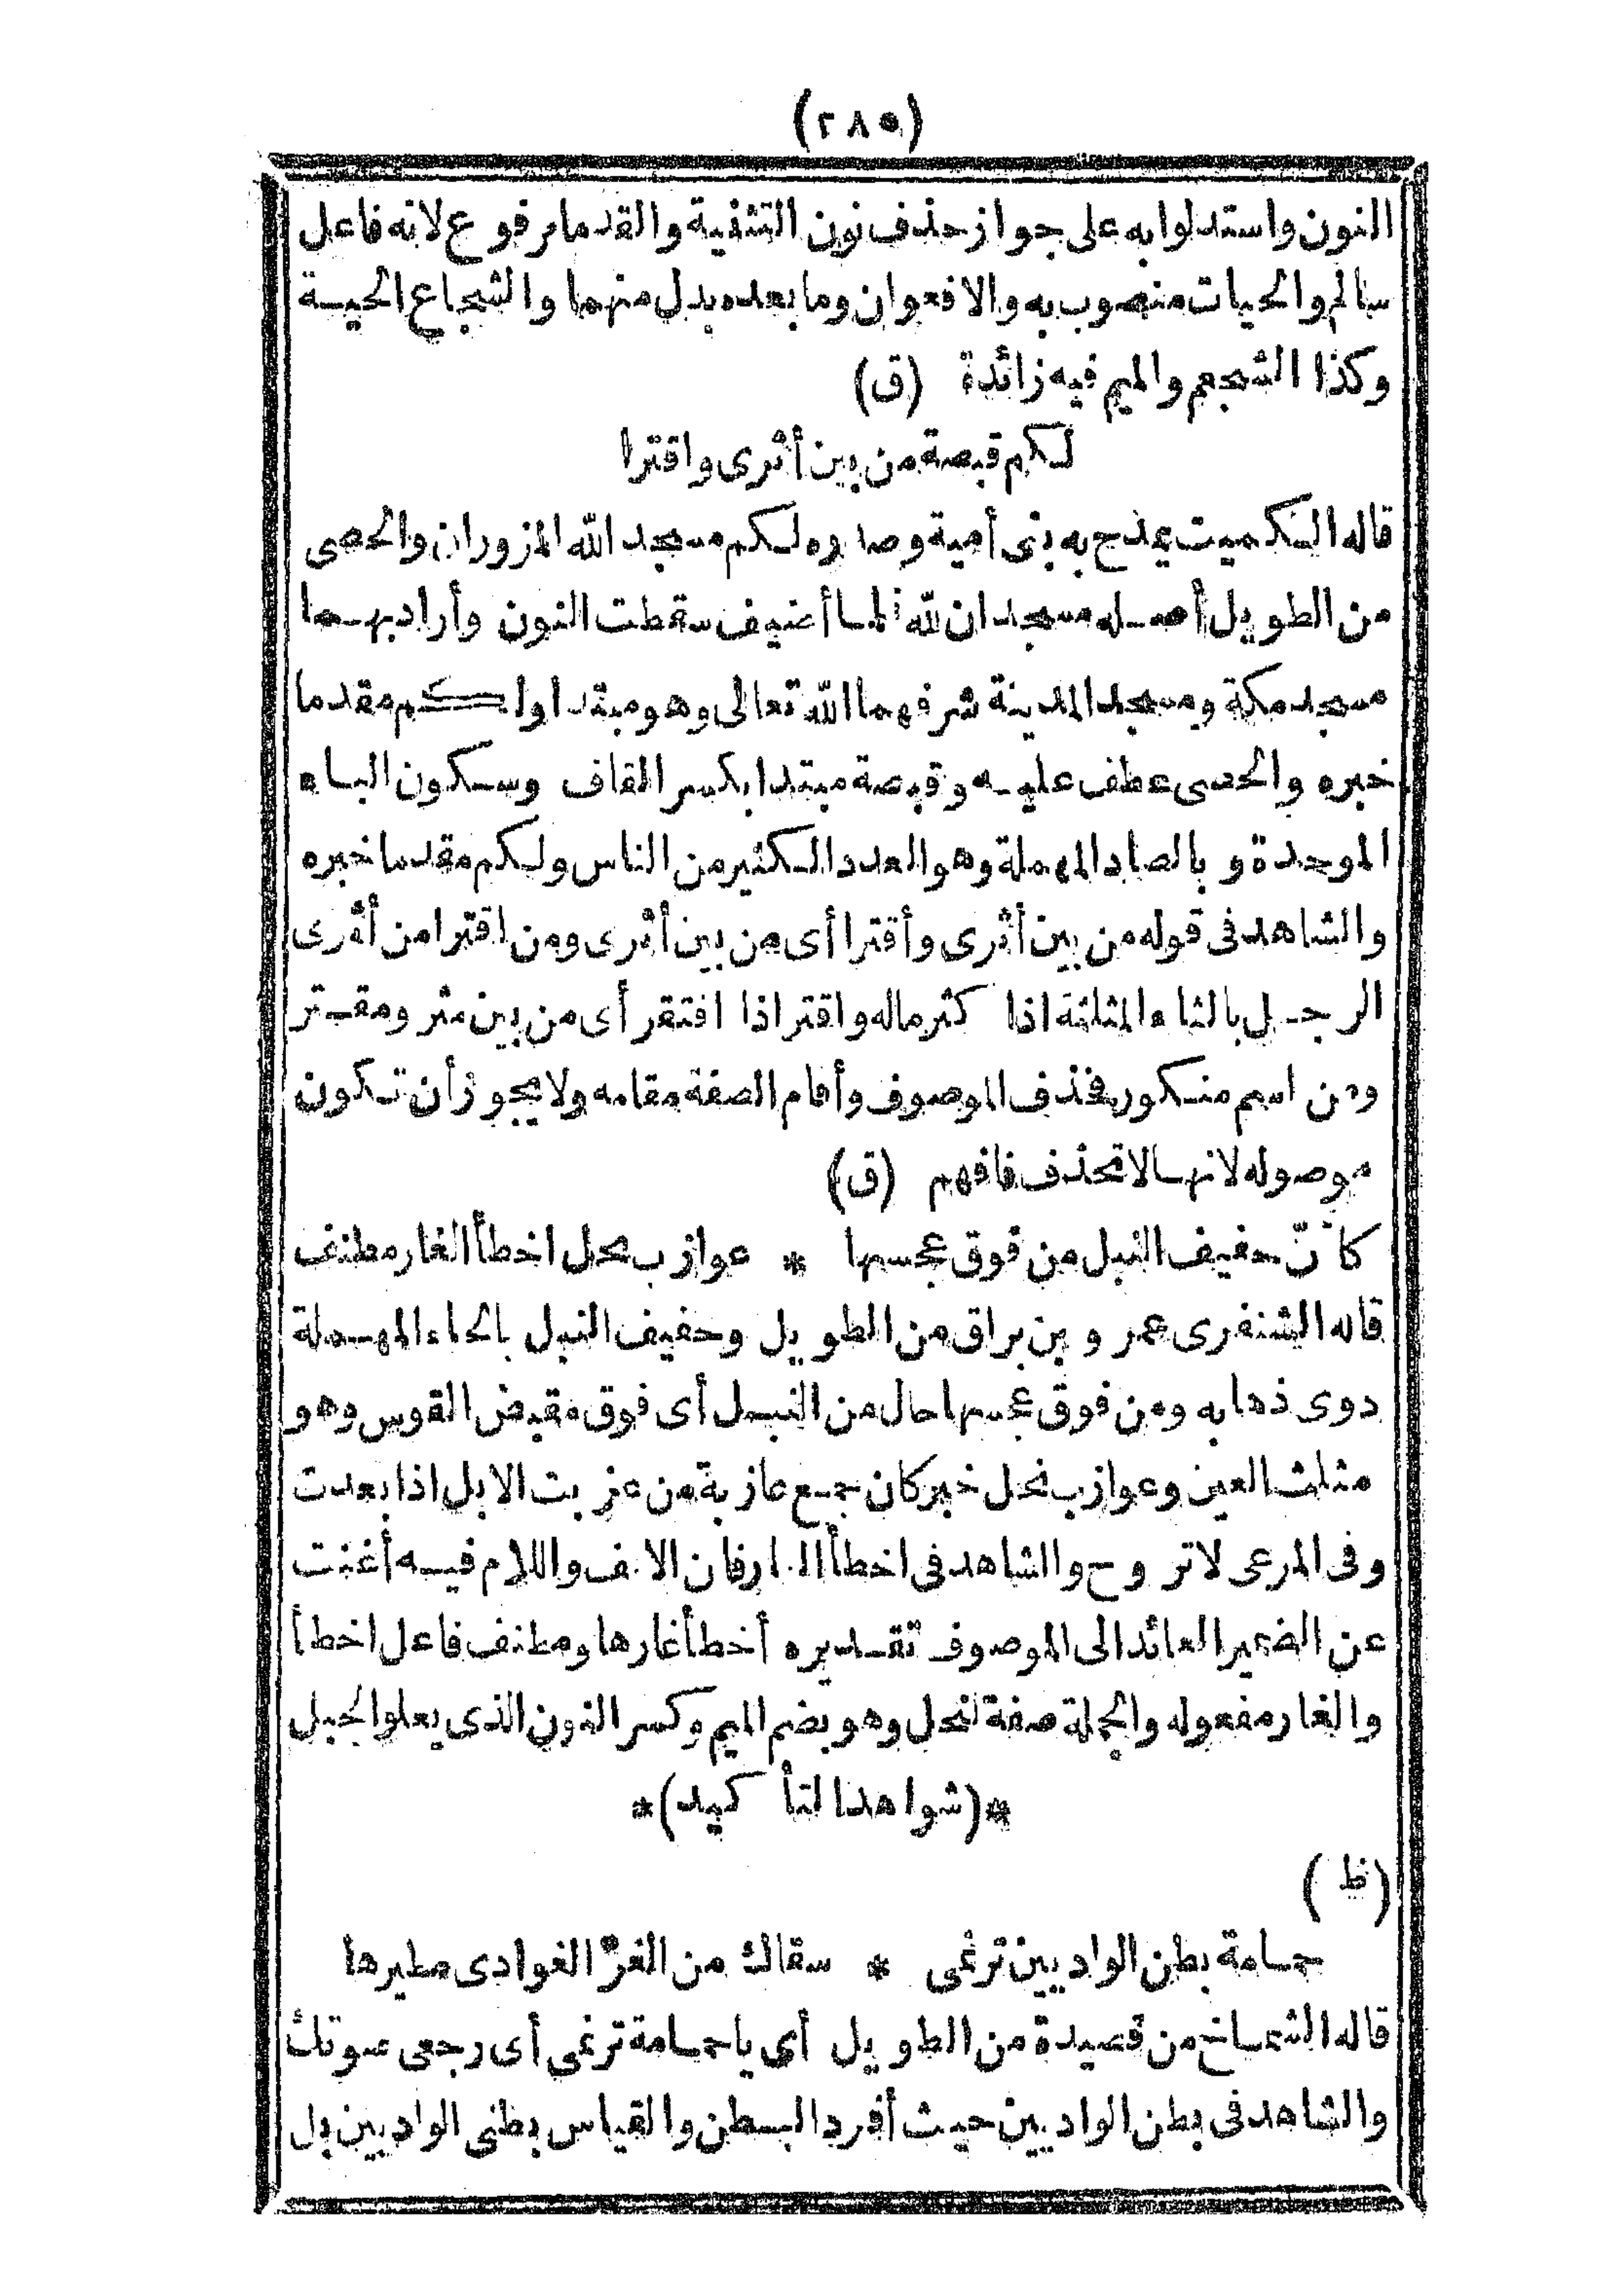 (٢٨٥)
النون واستدلوا به على جواز حذف نون التثنية والقدما مرفوع لانه فاعل
سالم والحيات منصوب به والافعوان وما بعده بدل منهما والشجاع الحية
وكذا الشجعم والميم فيه زائدة (ق)
لكم قبصة من بين أثرى واقترا
قاله الكميت يمدح به بنى أمية وصدره لكم مسجد الله المزوران والحصى
من الطويل أصله مسجدان لله فلما أضيف سقطت النون وأراد بهما
مسجد مكة ومسجد المدينة شرفهما الله تعالى وهو مبتدا ولكم مقدما
خبره والحصى عطف عليه وقبصة مبتدا بكسر القاف وسكون الباء
الموحدة و بالصاد المهملة وهو العدد الكثير من الناس ولكم مقدما خبره
والشاهد فى قوله من بين أثرى وأقترا أى من بين أثرى ومن اقترا من أثرى
الرجل بالثاء المثلثة اذا كثر ماله واقتر اذا افتقر أى من بين مثر ومقتر
ومن اسم منكور فحذف الموصوف وأقام الصفة مقامه ولا يجوز أن تكون
موصوله لانها لا تحذف فافهم (ق)
كأنّ حفيف النبل من فوق عجسها * عوازب نحل اخطأ الغار مطنف
قاله الشنفرى عمرو بن براق من الطويل وحفيف النبل بالحاء المهملة
دوى ذهابه ومن فوق عجسها حال من النبل أى فوق مقبض القوس وهو
مثلث العين وعوازب نحل خبر كان جمع عازبة من عزبت الابل اذا بعدت
وفى المرعى لا تروح والشاهد فى اخطأ الغار فان الالف واللام فيه أغنت
عن الضمير العائد الى الموصوف تقديره أخطأ غارها ومطنف فاعل اخطأ
والغار مفعوله والجملة صفة لنحل وهو بضم الميم وكسر النون الذى يعلو الجبل
*(شواهد التأكيد)*
(ظ)
حمامة بطن الواديين ترنمى * سقاك من الغرّ الغوادى مطيرها
قاله الشماخ من قصيدة من الطويل أى يا حمامة ترنمى أى رجعى صوتك
والشاهد فى بطن الواديين حيث أفرد البطن والقياس بطنى الواديين بل